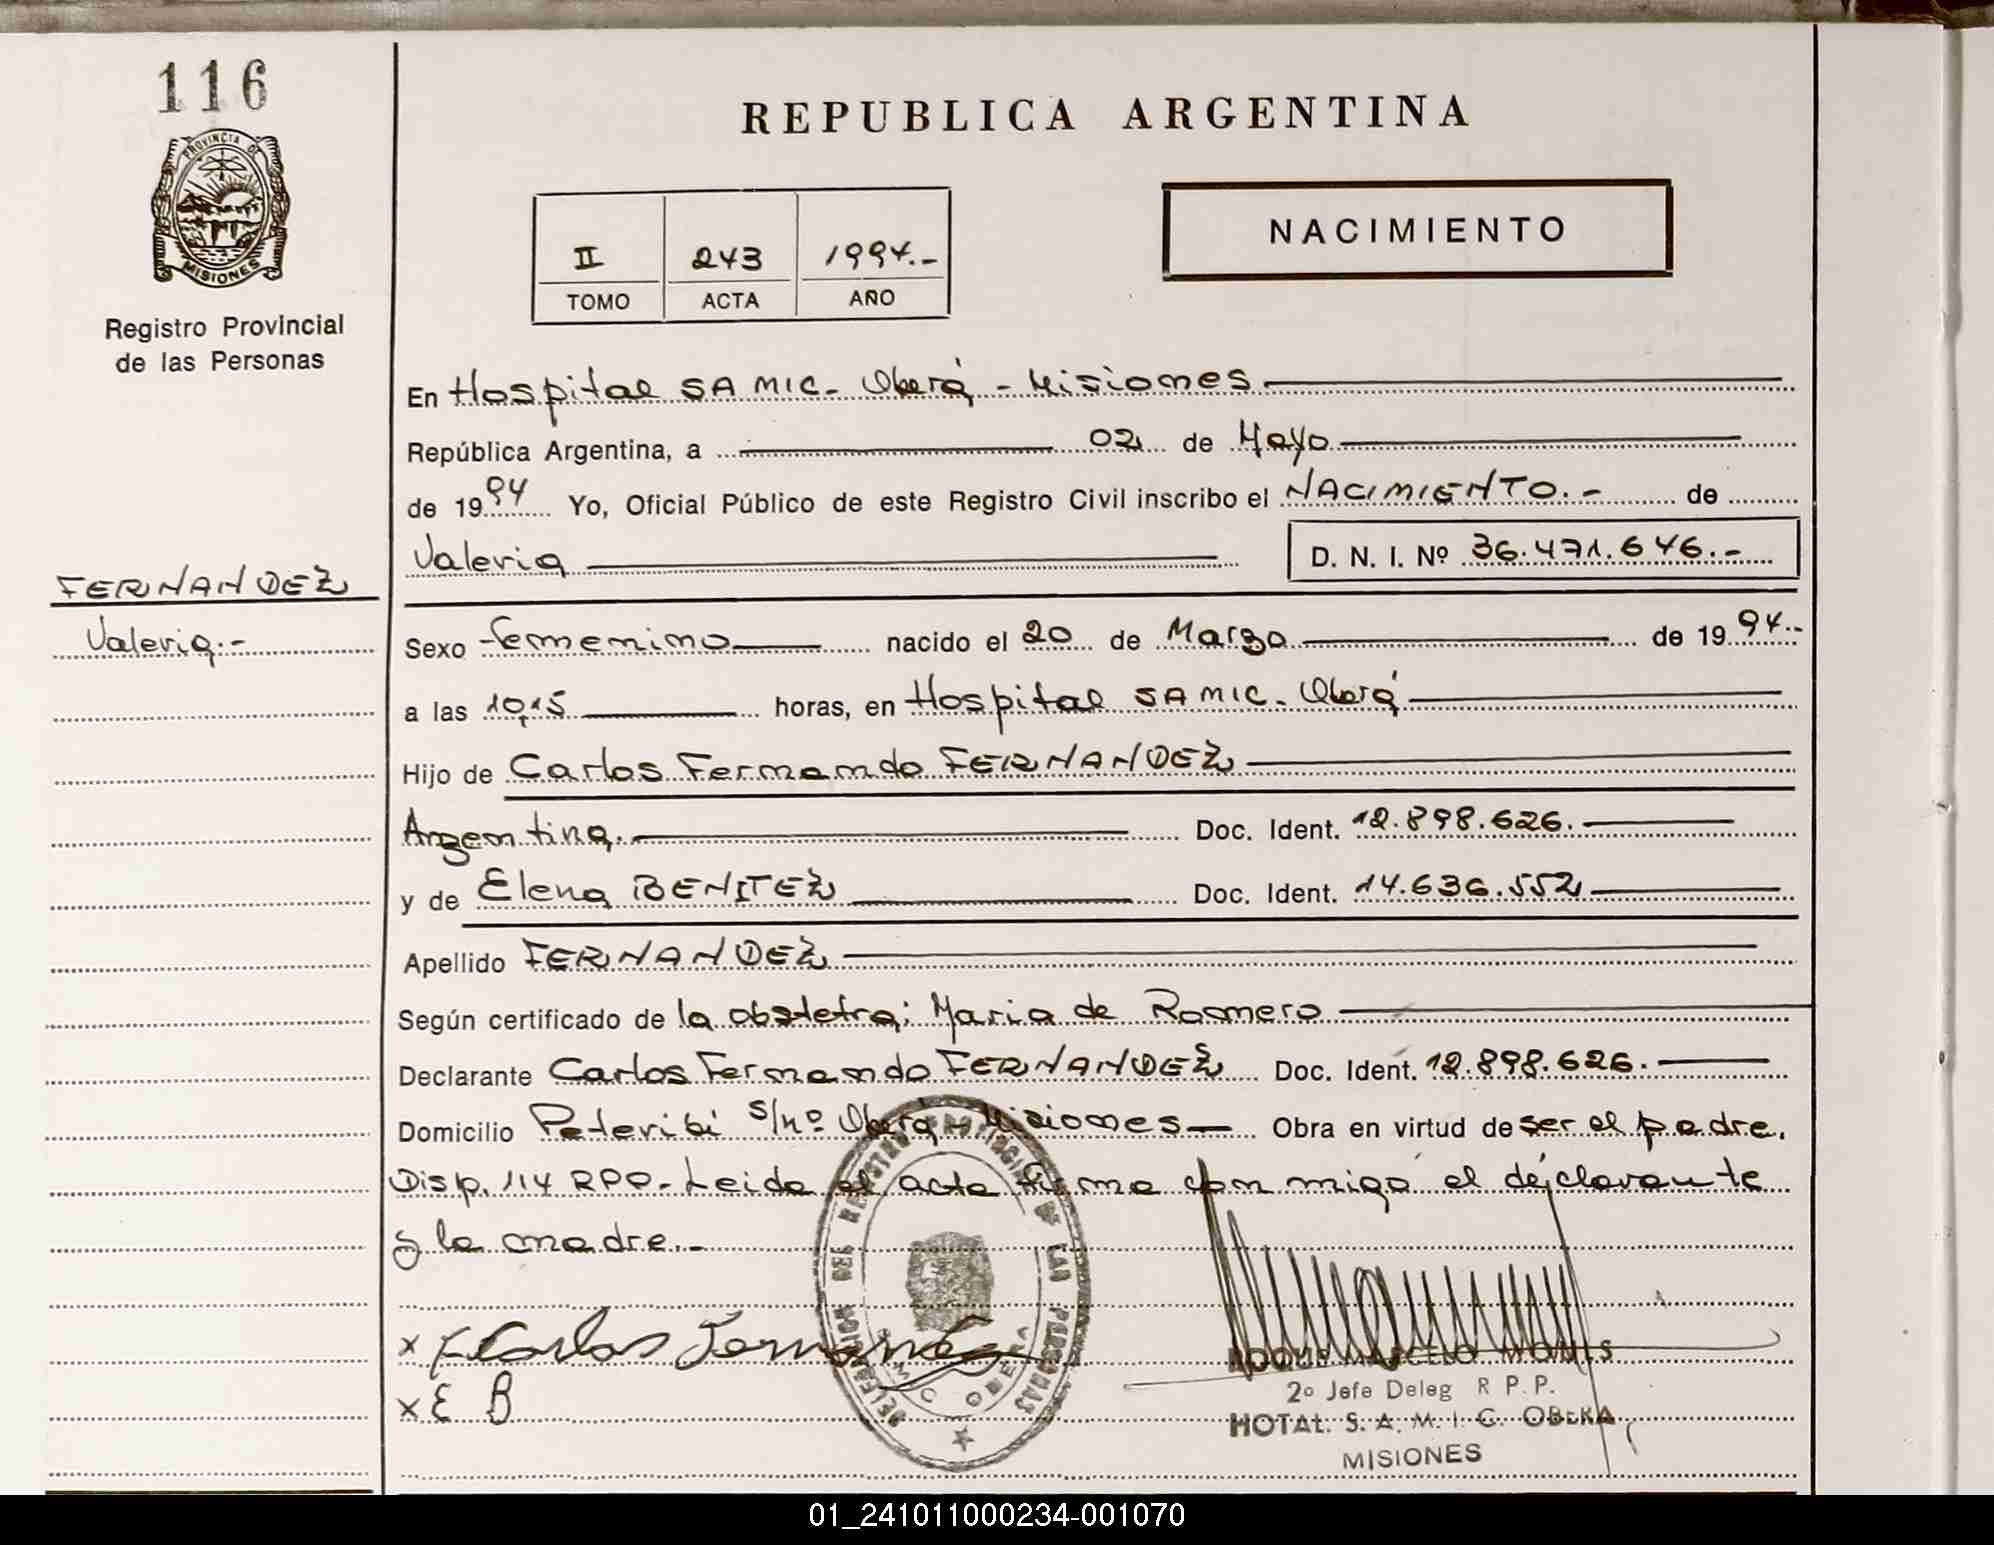 116
REPUBLICA ARGENTINA
PROVINCIA DE
MISIONES
Registro Provincial
de las Personas
II 243 1994.-
TOMO ACTA AÑO
NACIMIENTO
En Hospital SAMIC - Oberá - Misiones
República Argentina, a 02 de Mayo
de 1994 Yo, Oficial Público de este Registro Civil inscribo el NACIMIENTO.- de
Valeria D. N. I. Nº 36.471.646.-
FERNANDEZ
Valeria.-
Sexo femenino nacido el 20 de Marzo de 1994.-
a las 10,15 horas, en Hospital SAMIC - Oberá
Hijo de Carlos Fernando FERNANDEZ
Argentina. Doc. Ident. 12.898.626.
y de Elena BENITEZ Doc. Ident. 14.636.552
Apellido FERNANDEZ
Según certificado de la obstetra; Maria de Romero
Declarante Carlos Fernando FERNANDEZ Doc. Ident. 12.898.626.
Domicilio Peteribí s/nº Oberá - Misiones Obra en virtud de ser el padre.
Disp. 114 RPP - Leida el acta firma conmigo el declarante
y la madre.-
DELEGACION DEL REGISTRO PROVINCIAL DE LAS PERSONAS
OBERA
x Carlos Fernandez
x E B
2º Jefe Deleg R P. P.
HOTAL. S. A. M. I. C. OBERA
MISIONES
01_241011000234-001070